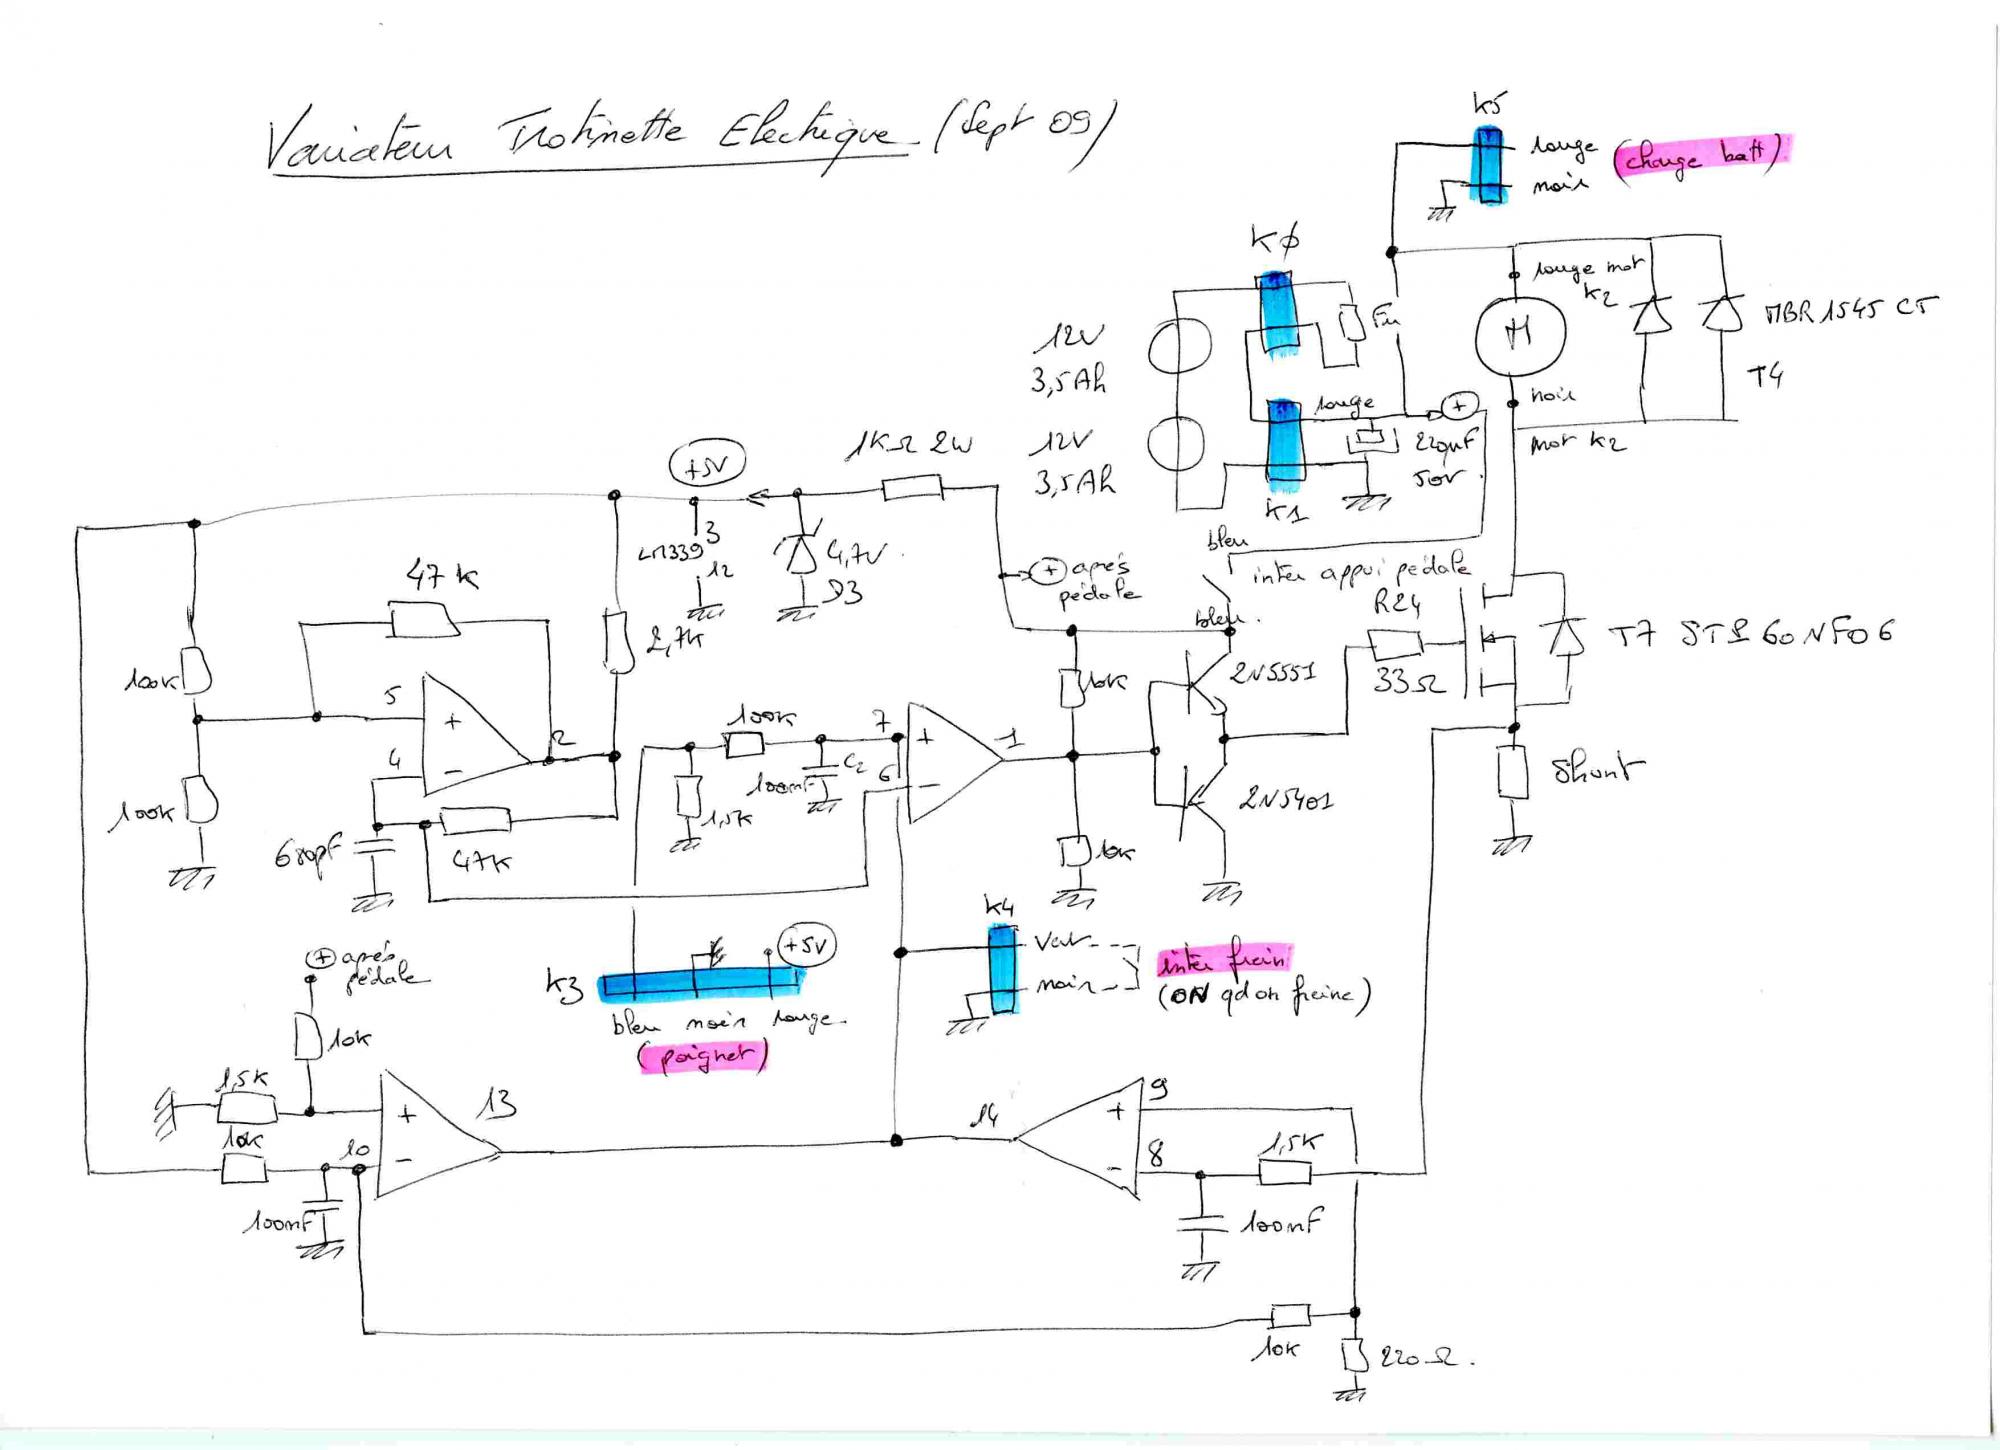 Variateur Trotinette Electrique (Sept 09)
K5
rouge (charge batt)
noir
KΦ
rouge mot
K2
Fu
12V
3,5Ah
M
MBR1545 CT
T4
noir
mot K2
rouge
+
220µF
50V
12V
3,5Ah
K1
1KΩ 2W
+5V
3
LM339
12
4,7V
D3
bleu
inter appui pédale
bleu
+ après
pédale
47K
2,7K
100K
100K
5
+
4
-
2
680pF
47K
100K
1,5K
100nF
C2
7
+
6
-
1
10K
10K
2N5551
2N5401
R24
33Ω
T7 STP60NF06
Shunt
K4
vert
noir
inter frein
(ON qd on freine)
+5V
K3
bleu noir rouge
(poignet)
+ après
pédale
10K
1,5K
10K
10
+
-
13
100nF
14
+
9
8
-
1,5K
100nF
10K
220Ω